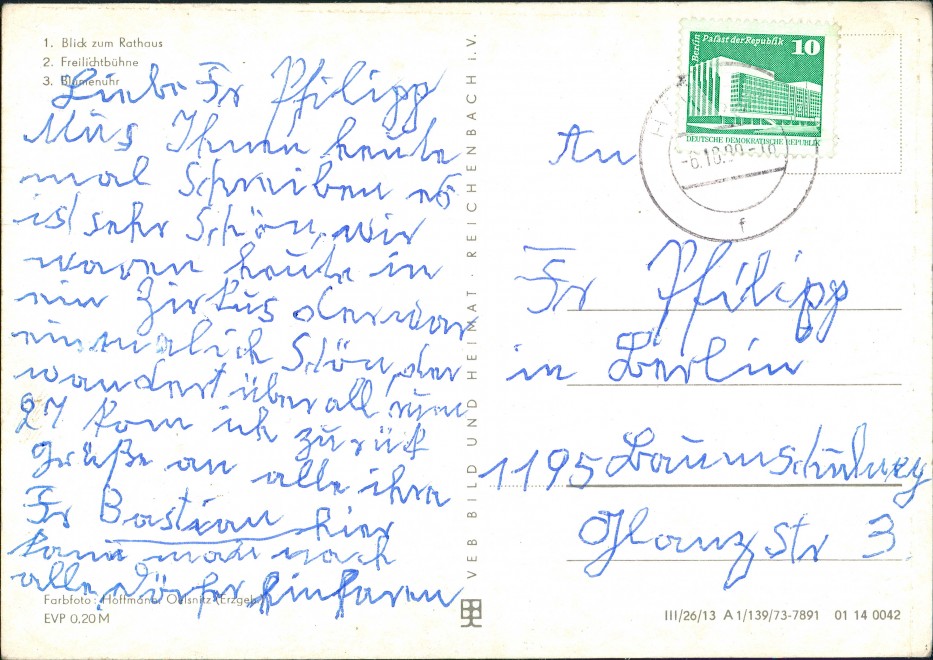 1. Blick zum Rathaus
2. Freilichtbühne
3. Blumenuhr
Liebe Fr Pfilipp
Mus Ihnen heute
mal Schreiben es
ist sehr Schön, wir
waren heute in
ein Zirkus der war
einmalich Schön, der
wandert über all rum
27 kom ich zurück
Grüße an alle ihre
Fr Bastian hier
kann man nach
alle Dörfer hinfaren
Farbfoto: Hoffmann, Oelsnitz (Erzgeb.)
EVP 0,20 M
VEB BILD UND HEIMAT · REICHENBACH i. V.
Berlin Palast der Republik 10
DEUTSCHE DEMOKRATISCHE REPUBLIK
f
An
Fr Pfilipp
in Berlin
1195 Baumschulweg
Glanzstr 3
III/26/13 A 1/139/73-7891 01 14 0042